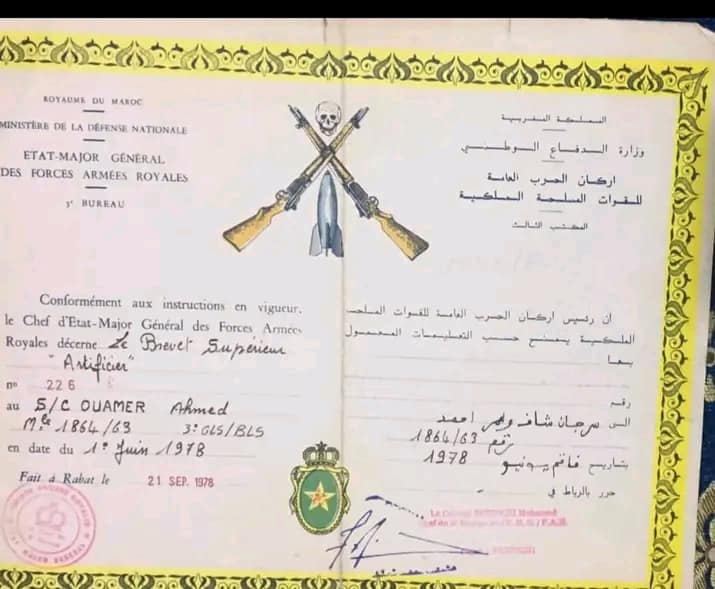 ROYAUME DU MAROC
MINISTÈRE DE LA DÉFENSE NATIONALE
ETAT-MAJOR GÉNÉRAL
DES FORCES ARMÉES ROYALES
3e BUREAU
المملكة المغربية
وزارة الدفاع الوطني
اركان الحرب العامة
للقوات المسلحة الملكية
المكتب الثالث
Conformément aux instructions en vigueur,
le Chef d'Etat-Major Général des Forces Armées
Royales décerne Le Brevet Supérieur
"Artificier"
n° 226
au S/C OUAMER Ahmed
Mle 1864/63 3° GLS/BLS
en date du 1° Juin 1978
Fait à Rabat le 21 SEP. 1978
ان رئيس اركان الحرب العامة للقوات المسلحة
الملكية يمنح حسب التعليمات المعمول
بها
رقم
الى سرجان شاف وعمر احمد
رقم 1864/63
بتاريخ فاتح يونيو 1978
حرر بالرباط في
Le Colonel Mohamed